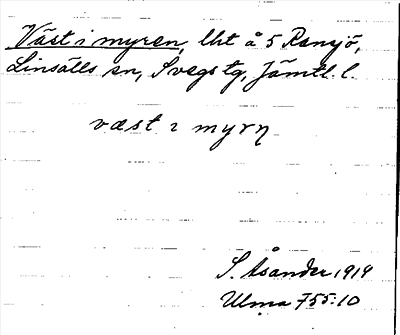 Väst i myren, lht å 5 Ransjö,
Linsälls sn, Svegs tg, Jämtl. l.
væst ı myrn̥
S. Åsander 1919
Ulma 755:10